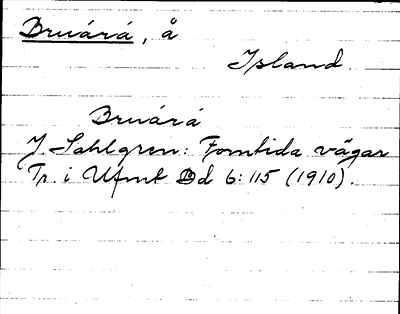 Bruárá, å
Island.
Bruárá
J. Sahlgren: Forntida vägar
Tr. i Ufmt Bd 6: 115 (1910).